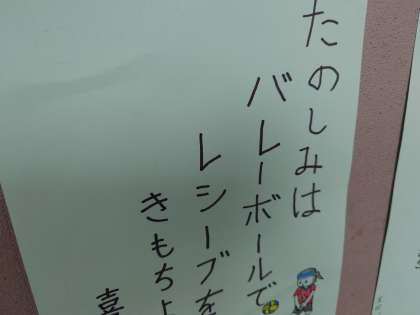 たのしみは
バレーボールで
レシーブを
きもちよ
喜